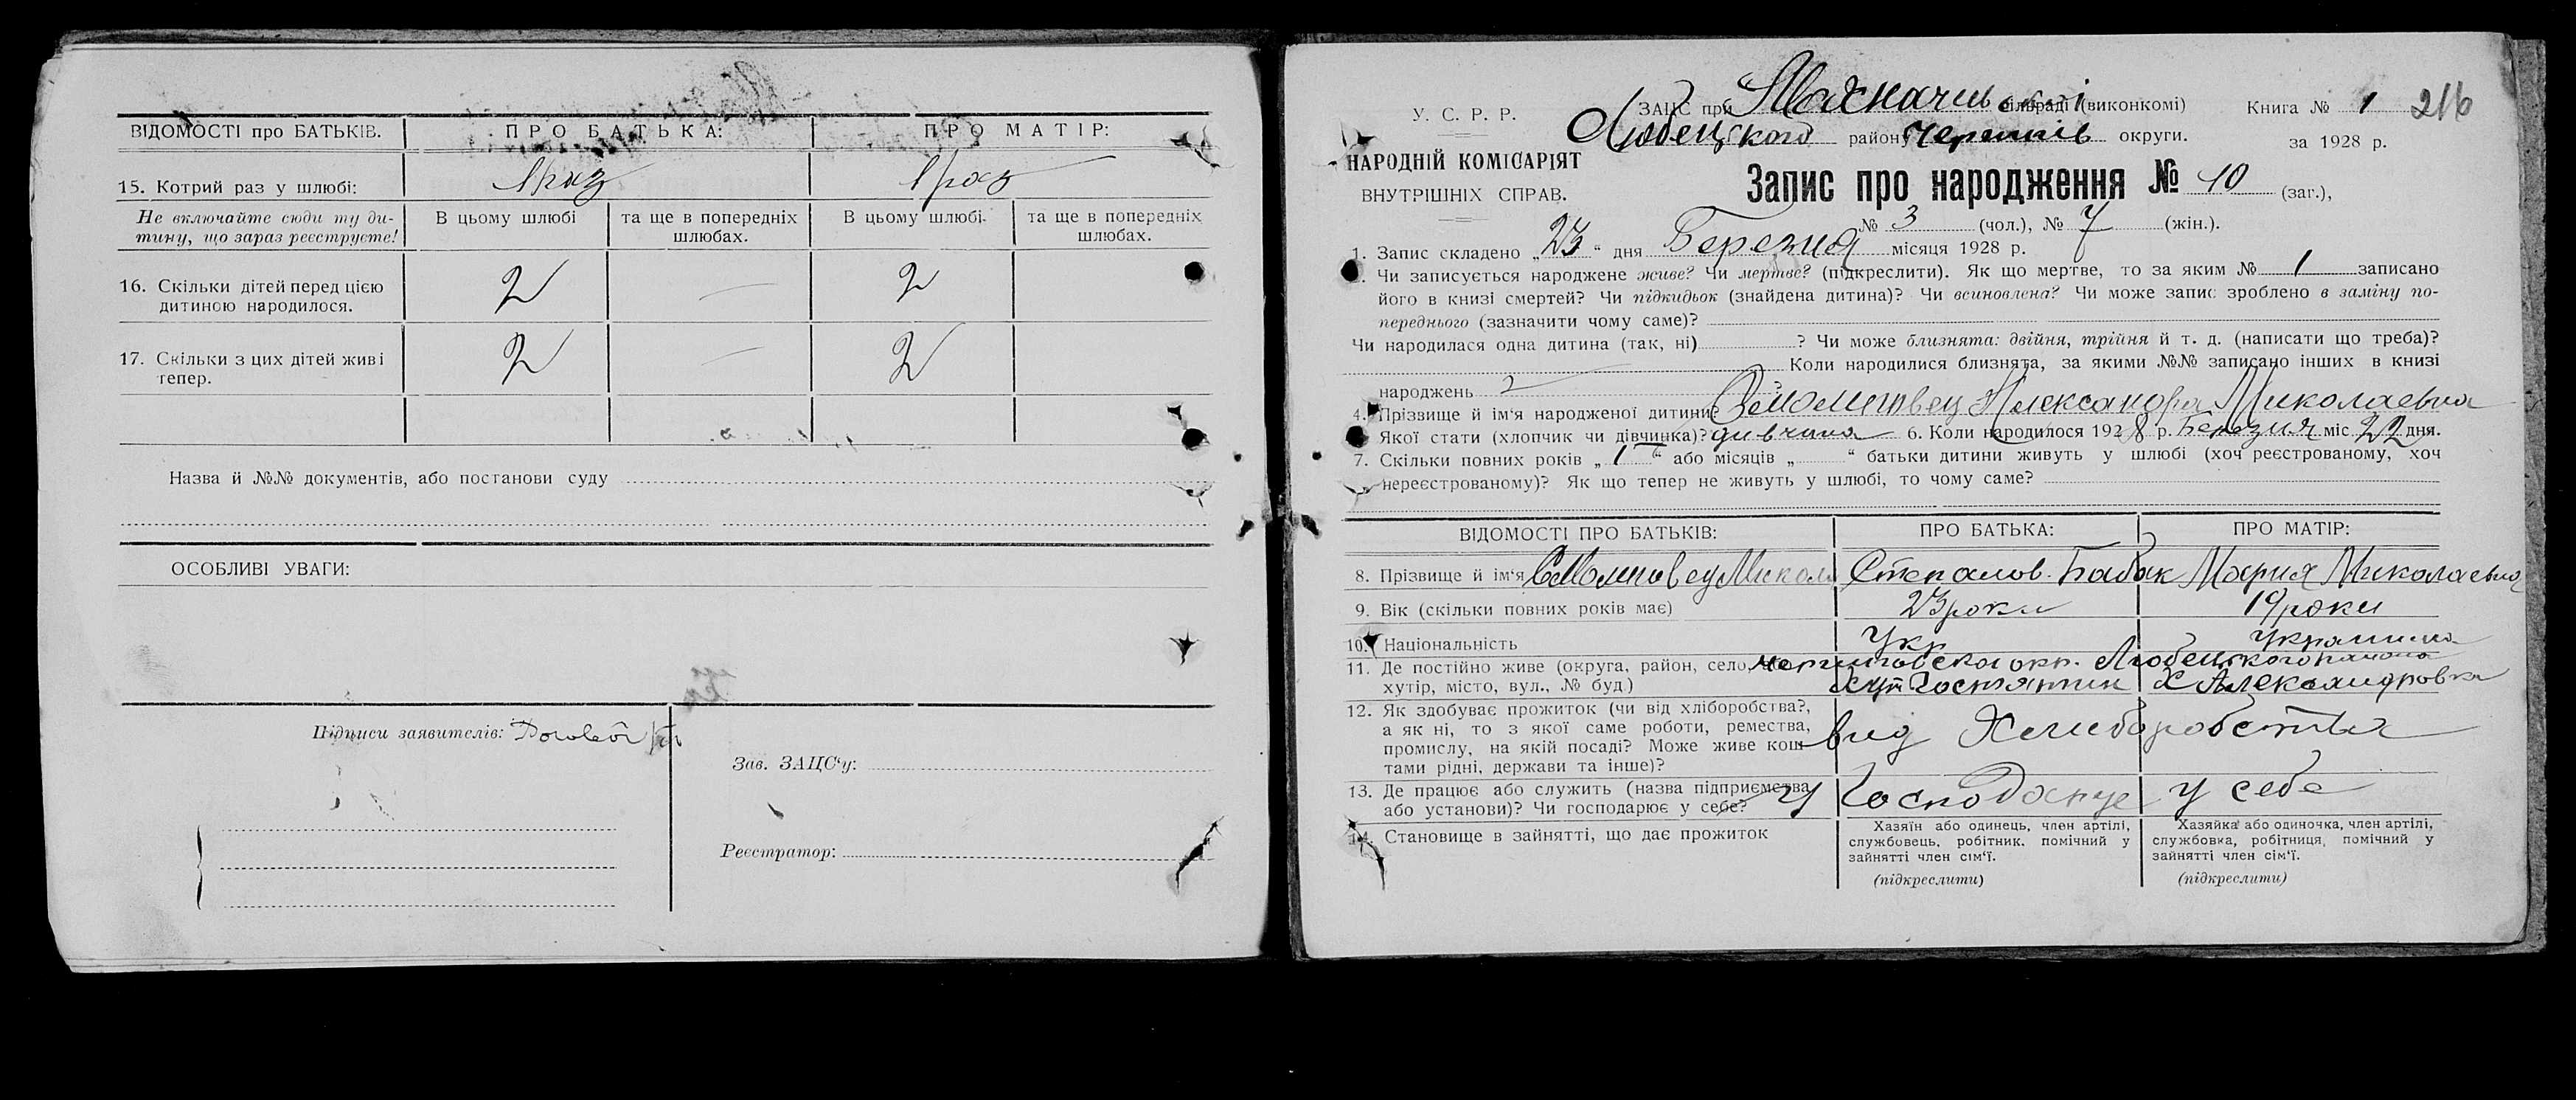 ВІДОМОСТІ про БАТЬКІВ. ПРО БАТЬКА: ПРО МАТІР:
15. Котрий раз у шлюбі: 1 раз 1 раз
Не включайте сюди ту ди-
тину, що зараз реєструєте!
В цьому шлюбі
та ще в попередніх
шлюбах.
В цьому шлюбі.
та ще в попередніх
шлюбах.
16. Скільки дітей перед цією
дитиною народилося. 2 — 2
17. Скільки з цих дітей живі
тепер. 2 — 2
Назва й №№ документів, або постанови суду
ОСОБЛИВІ УВАГИ:
Підписи заявителів:
Зав. ЗАЦС'у:
Реєстратор:
У. С. Р. Р.
НАРОДНІЙ КОМІСАРІЯТ
ВНУТРІШНІХ СПРАВ.
ЗАЦС при сільраді (виконкомі)
Любецкого району Черниів округи.
Книга № 1 216
за 1928 р.
Запис про народження № 10 (заг.),
№ 3 (чол.), № 7 (жін.).
1. Запис складено „23“ дня Березня місяця 1928 р.
Чи записується народжене живе? Чи мертве? (підкреслити). Як що мертве, то за яким № 1 записано
його в книзі смертей? Чи підкидьок (знайдена дитина)? Чи всиновлена? Чи може запис зроблено в заміну по-
переднього (зазначити чому саме)?
Чи народилася одна дитина (так, ні) ? Чи може близнята: двійня, трійня й т. д. (написати що треба)?
Коли народилися близнята, за якими №№ записано інших в книзі
народжень ?
4. Прізвище й ім'я народженої дитини? Александра Миколаевна
Якої стати (хлопчик чи дівчинка)? дивчина 6. Коли народилося 1928 р. Березня міс 22 дня.
7. Скільки повних років „1“ або місяців „ “ батьки дитини живуть у шлюбі (хоч реєстрованому, хоч
нереєстрованому)? Як що тепер не живуть у шлюбі, то чому саме?
ВІДОМОСТІ ПРО БАТЬКІВ: ПРО БАТЬКА: ПРО МАТІР:
8. Прізвище й ім'я Микола Степанов. Бабак Мария Миколаевна
9. Вік (скільки повних років має) 23 роки 19 роки
10. Національність Укр Украинка
11. Де постійно живе (округа, район, село, Любецкого района
хутір, місто, вул., № буд.) хут Гостятин Х Александровка
12. Як здобуває прожиток (чи від хліборобства?,
а як ні, то з якої саме роботи, ремества,
промислу, на якій посаді? Може живе кош-
тами рідні, держави та інше)?
вид Хлиборобства
13. Де працює або служить (назва підприємства
або установи)? Чи господарює у себе? Господарує у себе
14. Становище в зайнятті, що дає прожиток
Хазяїн або одинець, член артілі,
службовець, робітник, помічний у
зайнятті член сім'ї.
(підкреслити)
Хазяйка або одиночка, член артілі,
службовка, робітниця, помічний у
зайнятті член сім'ї.
(підкреслити)